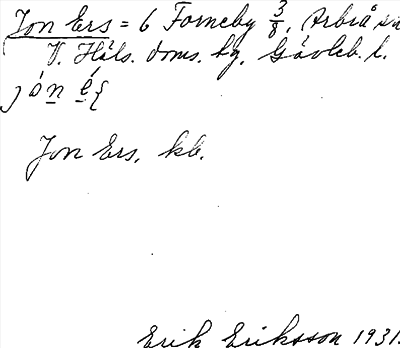 Jon Ers = 6 Forneby 3/8, Arbrå sn
V. Häls. doms. hg. Gävleb. l.
jón é
Jon Ers, kb.
Erik Eriksson 1931.